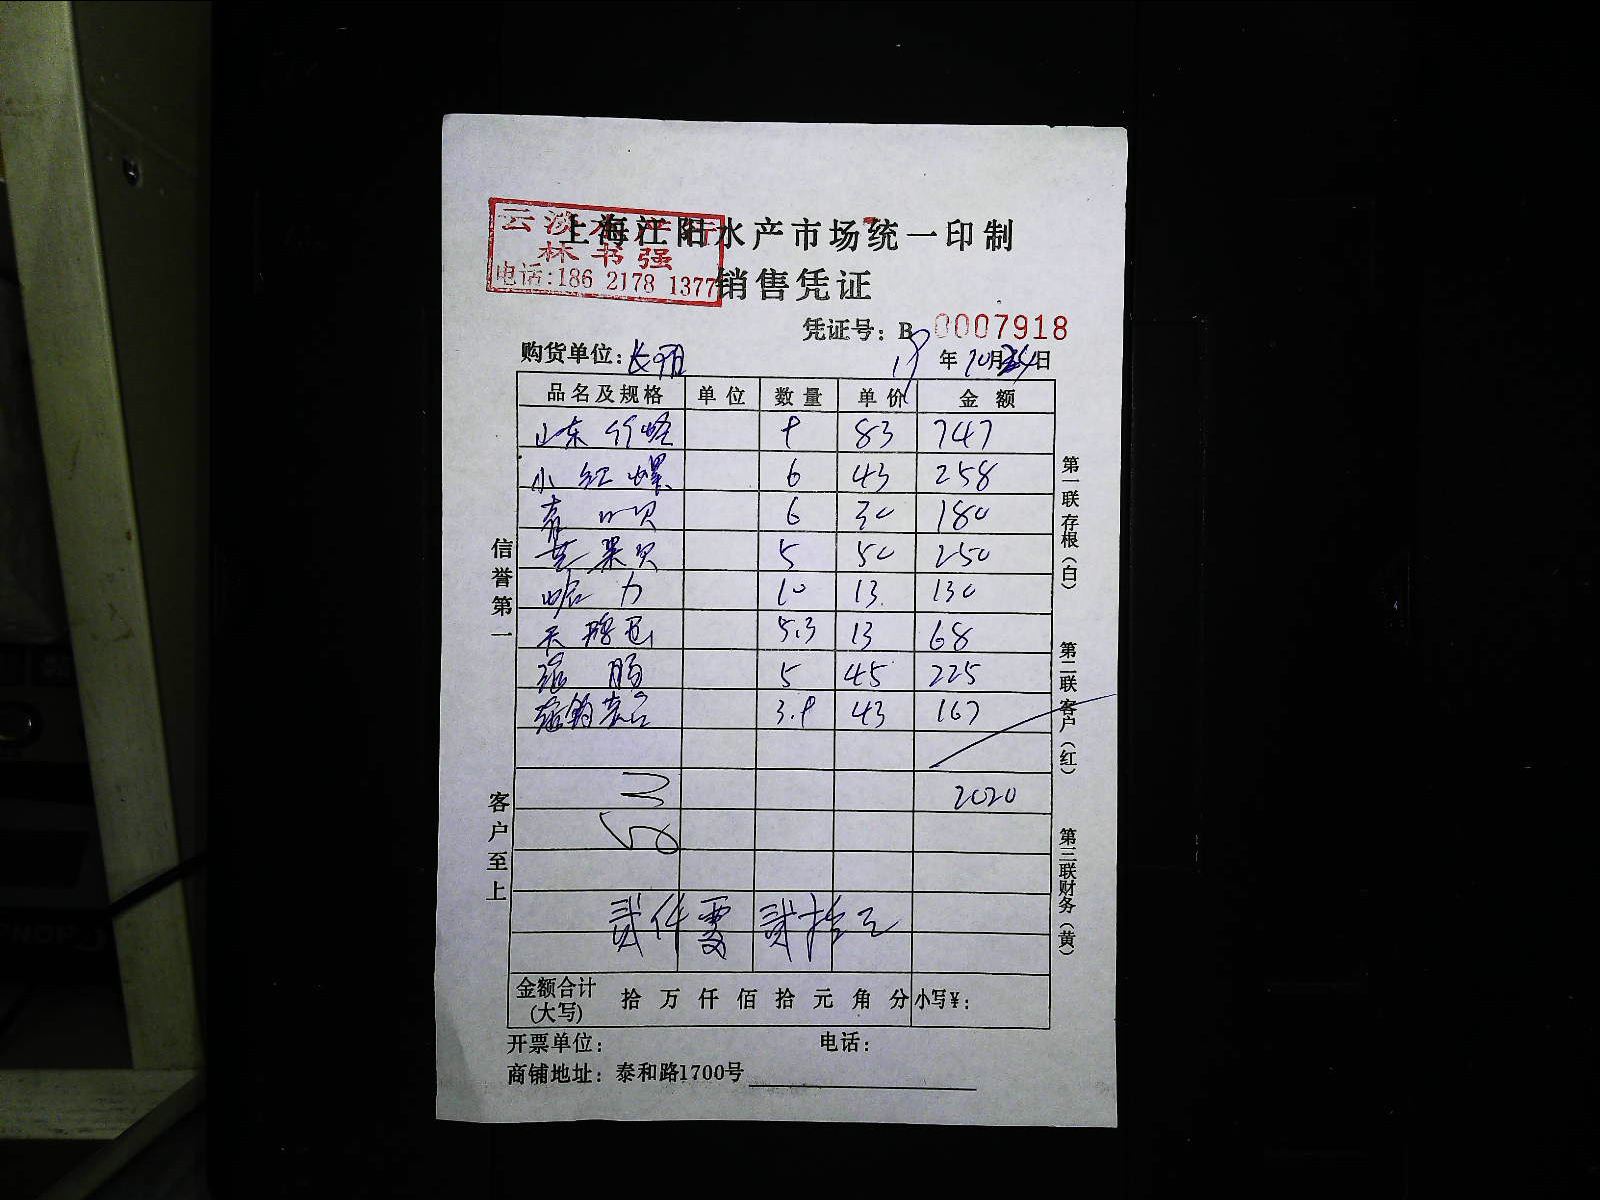 云淡水产行
林书强
电话:186 2178 1377
上海江阳水产市场统一印制
销售凭证
凭证号：B 0007918
购货单位：长阳 19年10月24日
品名及规格 单位 数量 单价 金额
山东竹蛏 9 83 747
小红螺 6 43 258
青口贝 6 30 180
芒果贝 5 50 250
哈力 10 13 130
5.3 13 68
海肠 5 45 225
3.9 43 167
2020
贰仟零贰拾元
金额合计(大写) 拾万仟佰拾元角分 小写¥：
开票单位： 电话：
商铺地址：泰和路1700号
信誉第一
客户至上
第一联存根（白）
第二联客户（红）
第三联财务（黄）